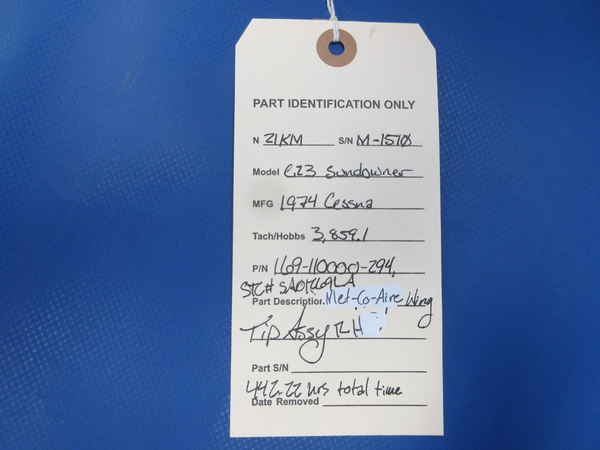 PART IDENTIFICATION ONLY
N 21KM S/N M-1570
Model C23 Sundowner
MFG 1974 Cessna
Tach/Hobbs 3,859.1
P/N 169-110000-294,
STC# LA
Part Description Met-Co-Aire Wing
Tip Assy RH
Part S/N
442.22 hrs total time
Date Removed